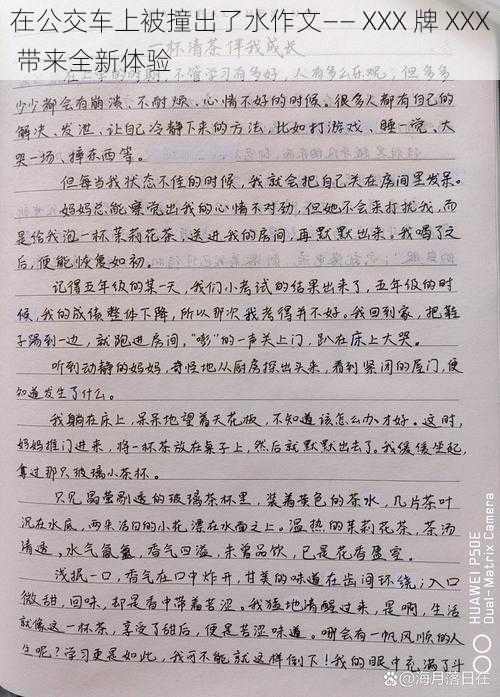 在公交车上被撞出了水作文—— XXX 牌 XXX
带来全新体验
一杯清茶伴我成长
不管学习有多好，人有多么乐观；但多多
少少都会有崩溃、不耐烦、心情不好的时候。很多人都有自己的
解决、发泄、让自己冷静下来的方法，比如打游戏、睡一觉、大
哭一场、摔东西等。
但每当我状态不佳的时候，我就会把自己关在房间里发呆。
妈妈总能察觉出我的心情不对劲，但她不会来打扰我，而
是给我泡一杯茉莉花茶，送进我的房间，再默默出来。我喝了之
后，便能恢复如初。
记得五年级的某一天，我们小考试的结果出来了，五年级的时
候，我的成绩整体下降，所以那次我考得并不好。我回到家，把鞋
子踢到一边，就跑进房间，“嘭”的一声关上门，趴在床上大哭。
听到动静的妈妈，奇怪地从厨房探出头来，看到紧闭的房门，便
知道发生了什么。
我躺在床上，呆呆地望着天花板，不知道该怎么办才好。这时，
妈妈推门进来，将一杯茶放在桌子上，然后就默默出去了。我缓缓坐起，
拿过那只玻璃小茶杯。
只见晶莹剔透的玻璃茶杯里，装着黄色的茶水，几片茶叶
沉在水底，两朵洁白的小花漂在水面之上。温热的茉莉花茶，茶汤
清透，水气氤氲，香气四溢，未曾品饮，已是花香盈室。
浅抿一口，香气在口中炸开，甘美的味道在齿间环绕；入口
微甜，回味，却是香中带着苦涩。我猛地清醒过来，是啊，生活
就像这一杯茶，享受了甜后，便是苦涩味道。哪会有一帆风顺的人
生呢？学习更是如此，我可不能就这样倒下！我的眼中充满了斗
HUAWEI P50E
Dual-Matrix Camera
@海月落日在